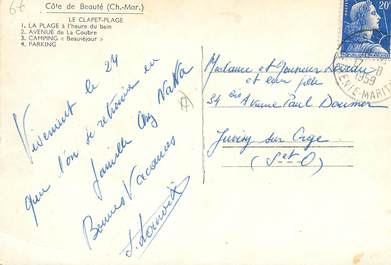 67
Côte de Beauté (Ch.-Mar.)
LE CLAPET-PLAGE
1. LA PLAGE à l'heure du bain
2. AVENUE de La Coubre
3. CAMPING « Beauséjour »
4. PARKING
20F
1959
Vivement le 24
que l'on se retrouve en
famille chez
Bonnes Vacances
Madame et Monsieur
et leur fille
34 bis Avenue Paul Doumer
Juvisy sur Orge
(S et O)